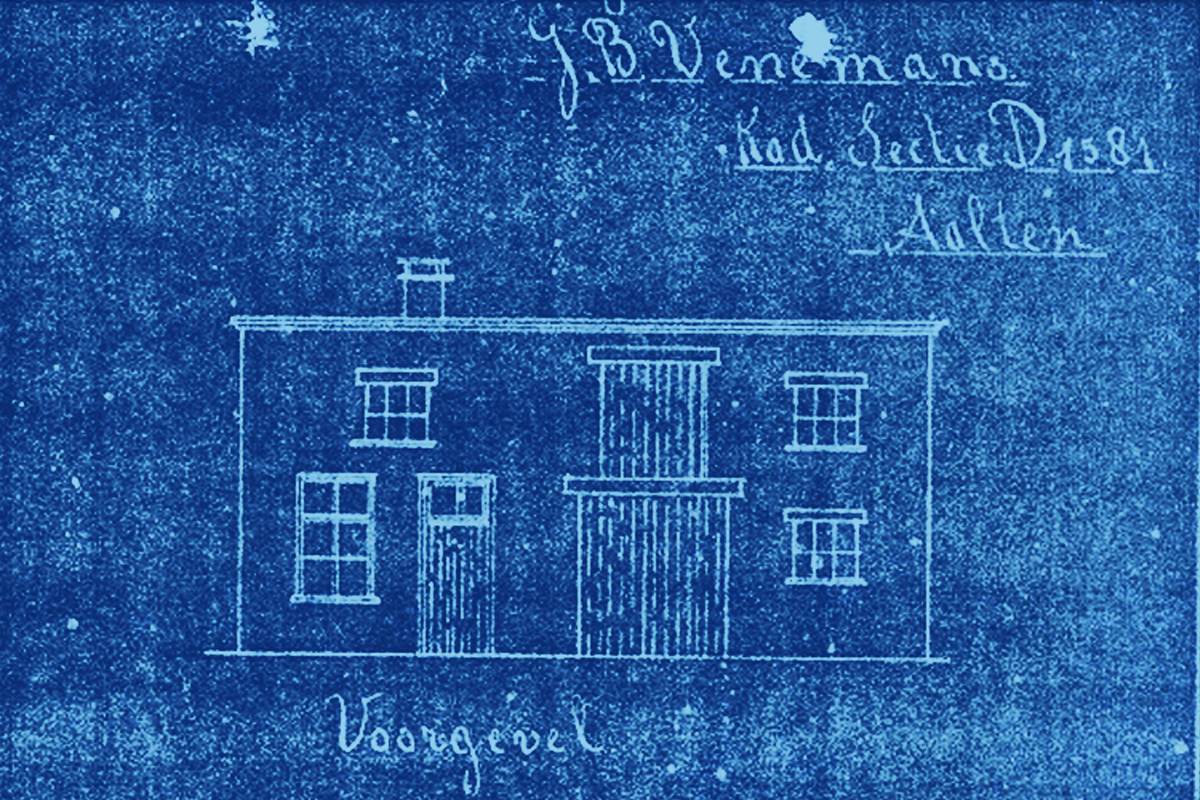 J. B. Venemans.
Kad. Sectie D. 1581
Aalten
Voorgevel